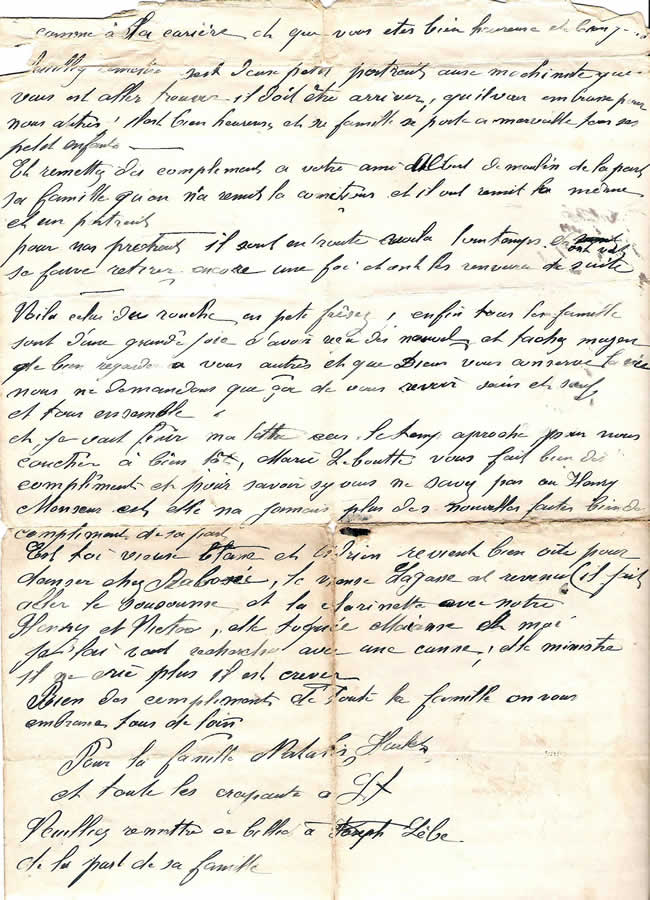 comme à la carière et que vous etes bien heureuse et
remettre sest deux petit portrait ause machiniste que
vous est aller trouver il doit être arriver, qu'il vou embrasse pour
nous autres, il est bien heureuse et sa famille se porte a merveille tous ses
petit enfants
Et remetty des compliments a votre ami Albert demoulin de la part
sa famille qu'on n'a remit la et il ont remit la même
et un portrait
pour nos protrait il sont en route voila lontemps et ont
se faire retirer encore une foi et ont les renvera de suite
Voila celui du rouche en pete , enfin tous les famille
sont d'une grande joie d'avoir des nouvel et tachez moyen
de bien regarder a vous autres et que Dieux vous conserve la vie
nous ne demandons que ça de vous revoir sains et sauf
et tous ensemble
et je vait finir ma lettre car le temp aproche pour nous
coucher à bien tôt, Marie Leboutte vous fait bien des
compliment et pour savoir sy vous ne savez pas ou Henry
Monseur est elle na jamais plus des nouvelles faites bien de
compliments de sa part
Est toi vieuse et revient bien vite pour
danser chez , le vieuse est revenu il fait
aller le et la clarinette avec notre
Henry et Victor, elle et moi
je lai vait rechercher avec une canne, elle ministre
il ne crie plus il est crever
Bien des compliments de toute la famille on vous
embrasse tous de loin
Pour la famille
et toute les crapaute a
Veuillez remettre ce billet à Joseph Lebe
de la part de sa famille